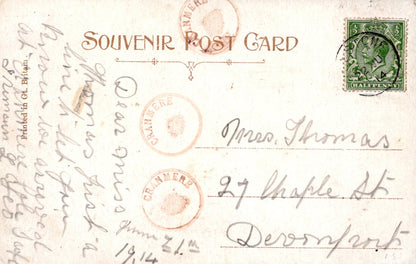 SOUVENIR POST CARD
Printed in Gt. Britain.
CRANMERE
CRANMERE
CRANMERE
HALFPENNY
Dear Miss
Thomas Just a
line to let you
know we arrived
at
June 21st
1914
Mrs. Thomas
27 Chaple St
Devonport